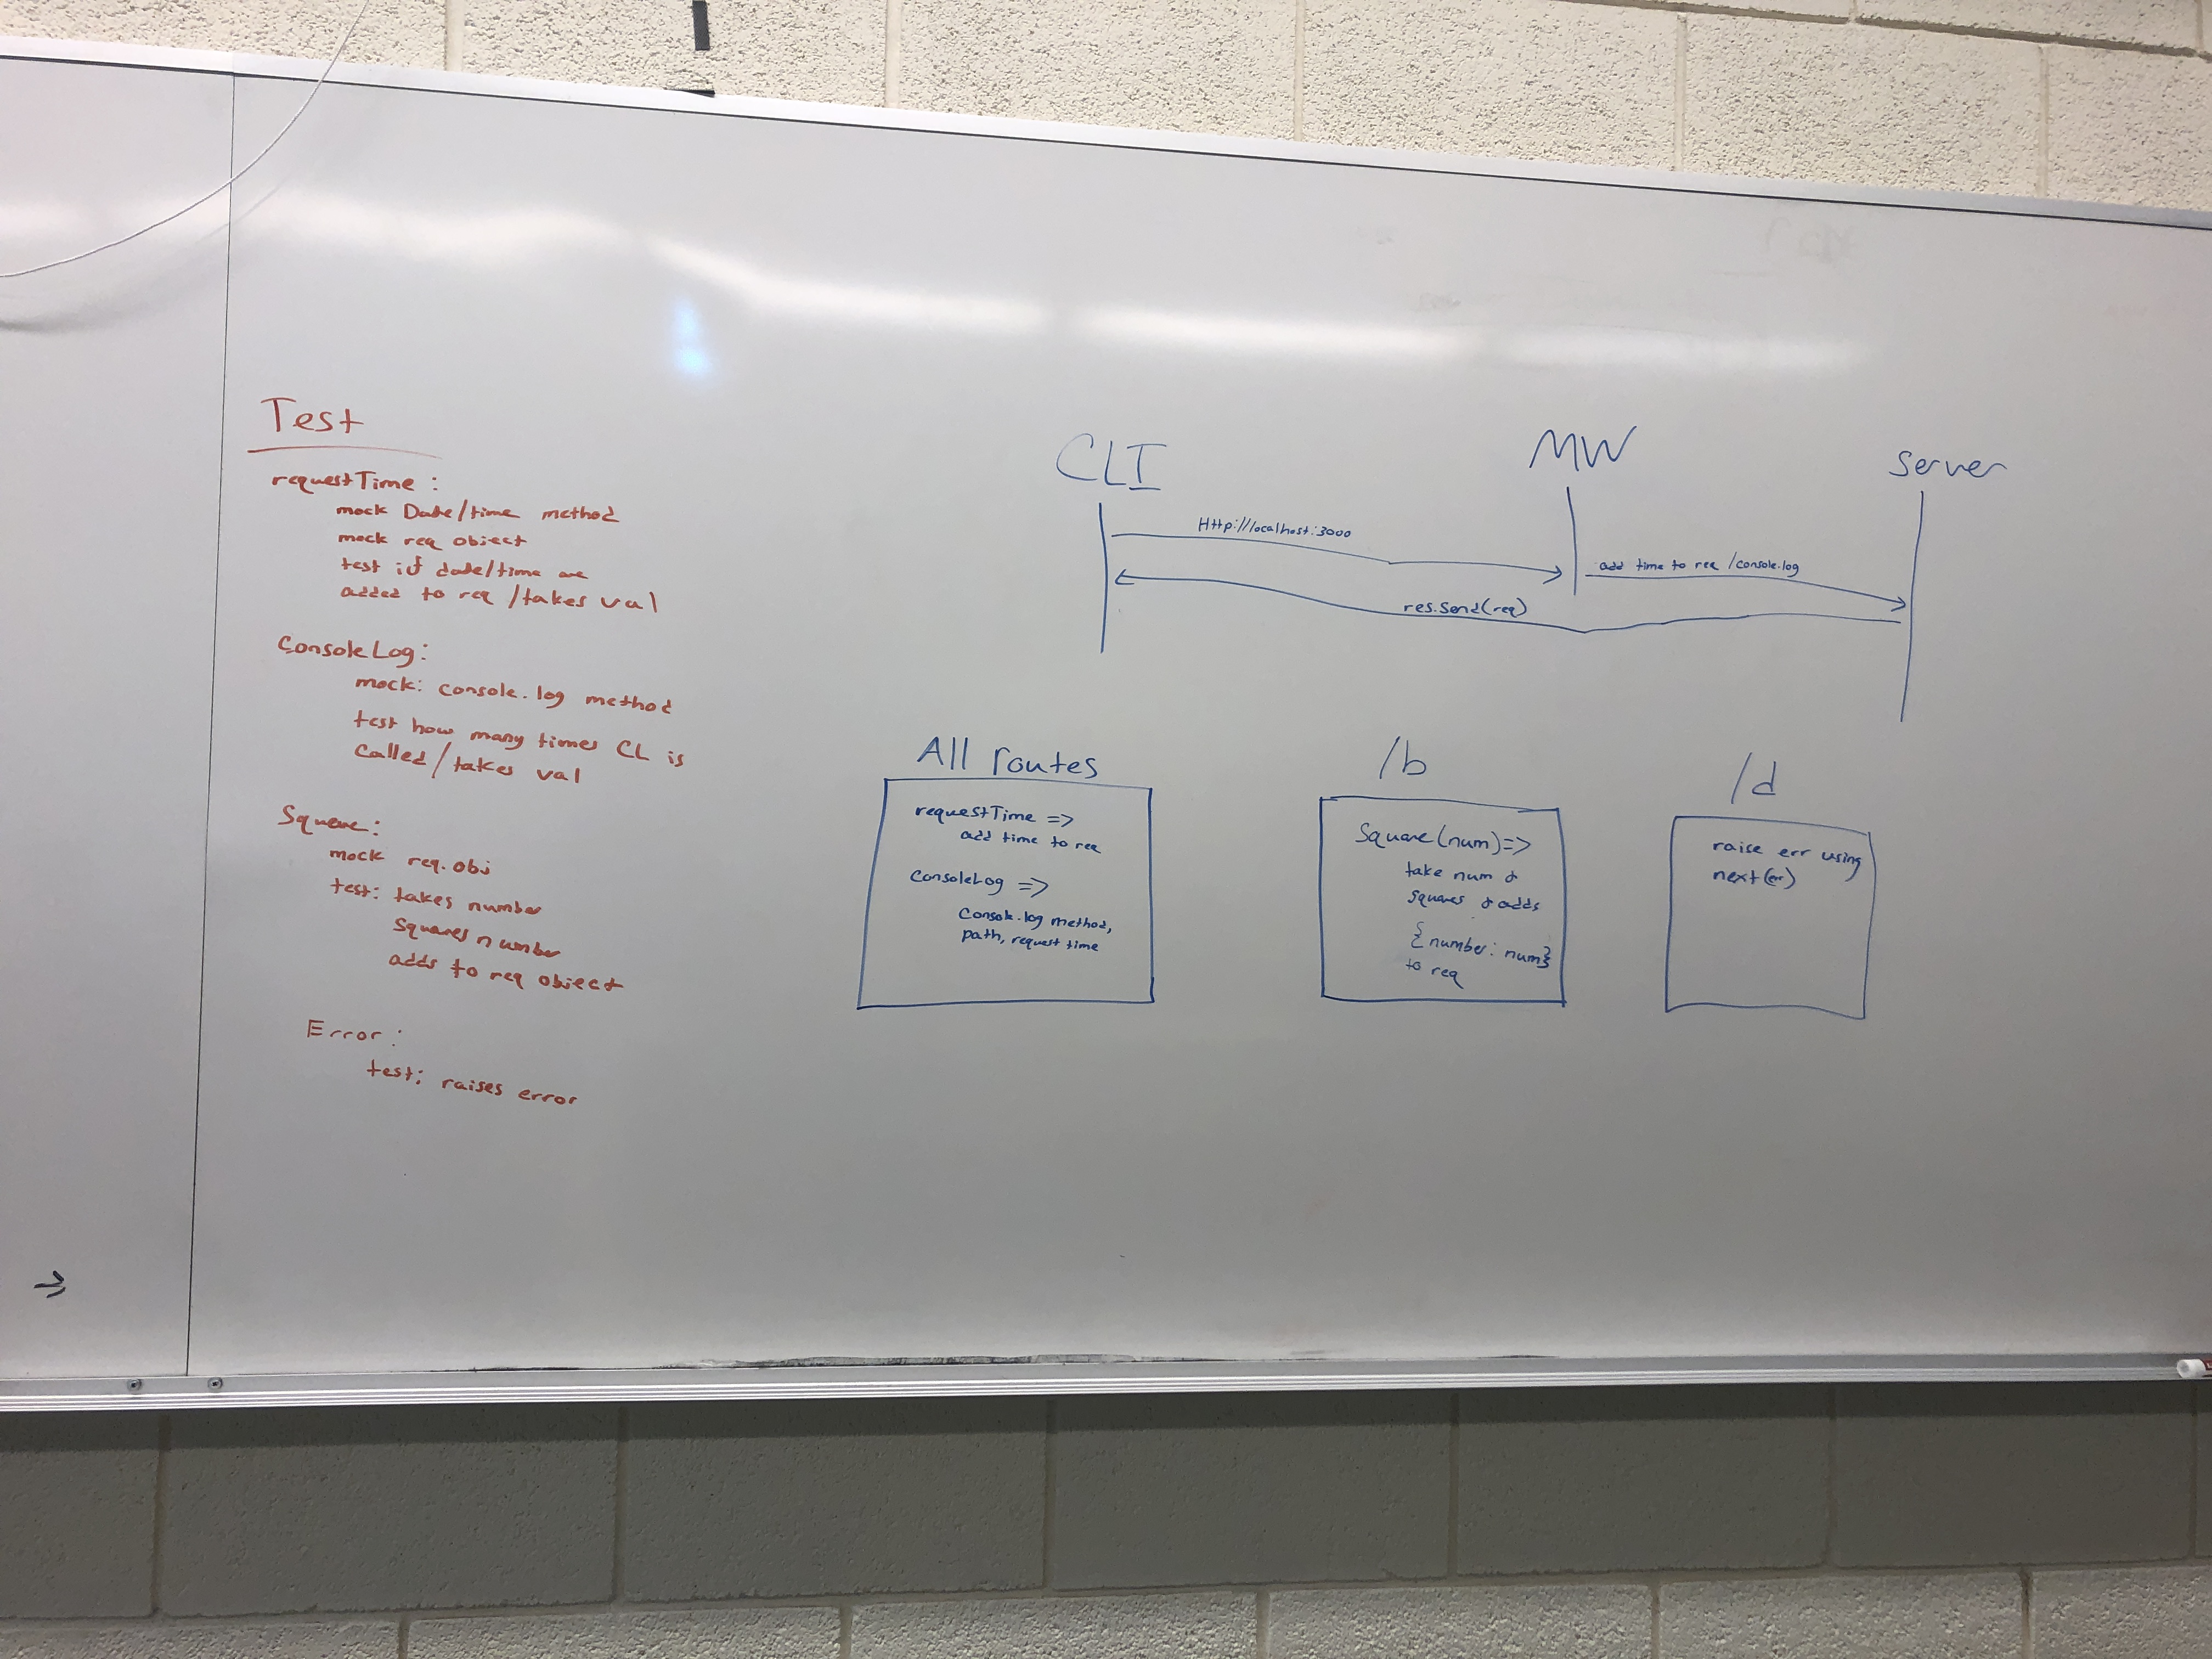 Test
requestTime:
mock Date/time method
mock req object
test if date/time are
added to req /takes val
ConsoleLog:
mock: console.log method
test how many times CL is
called/takes val
Square:
mock req.obj
test: takes number
squares number
adds to req object
Error:
test: raises error
CLI
MW
server
Http://localhost:3000
add time to req /console.log
res.send(req)
All routes
requestTime =>
add time to req
ConsoleLog =>
Console.log method,
path, request time
/b
Square(num)=>
take num &
squares & adds
{number: num}
to req
/d
raise err using
next(err)